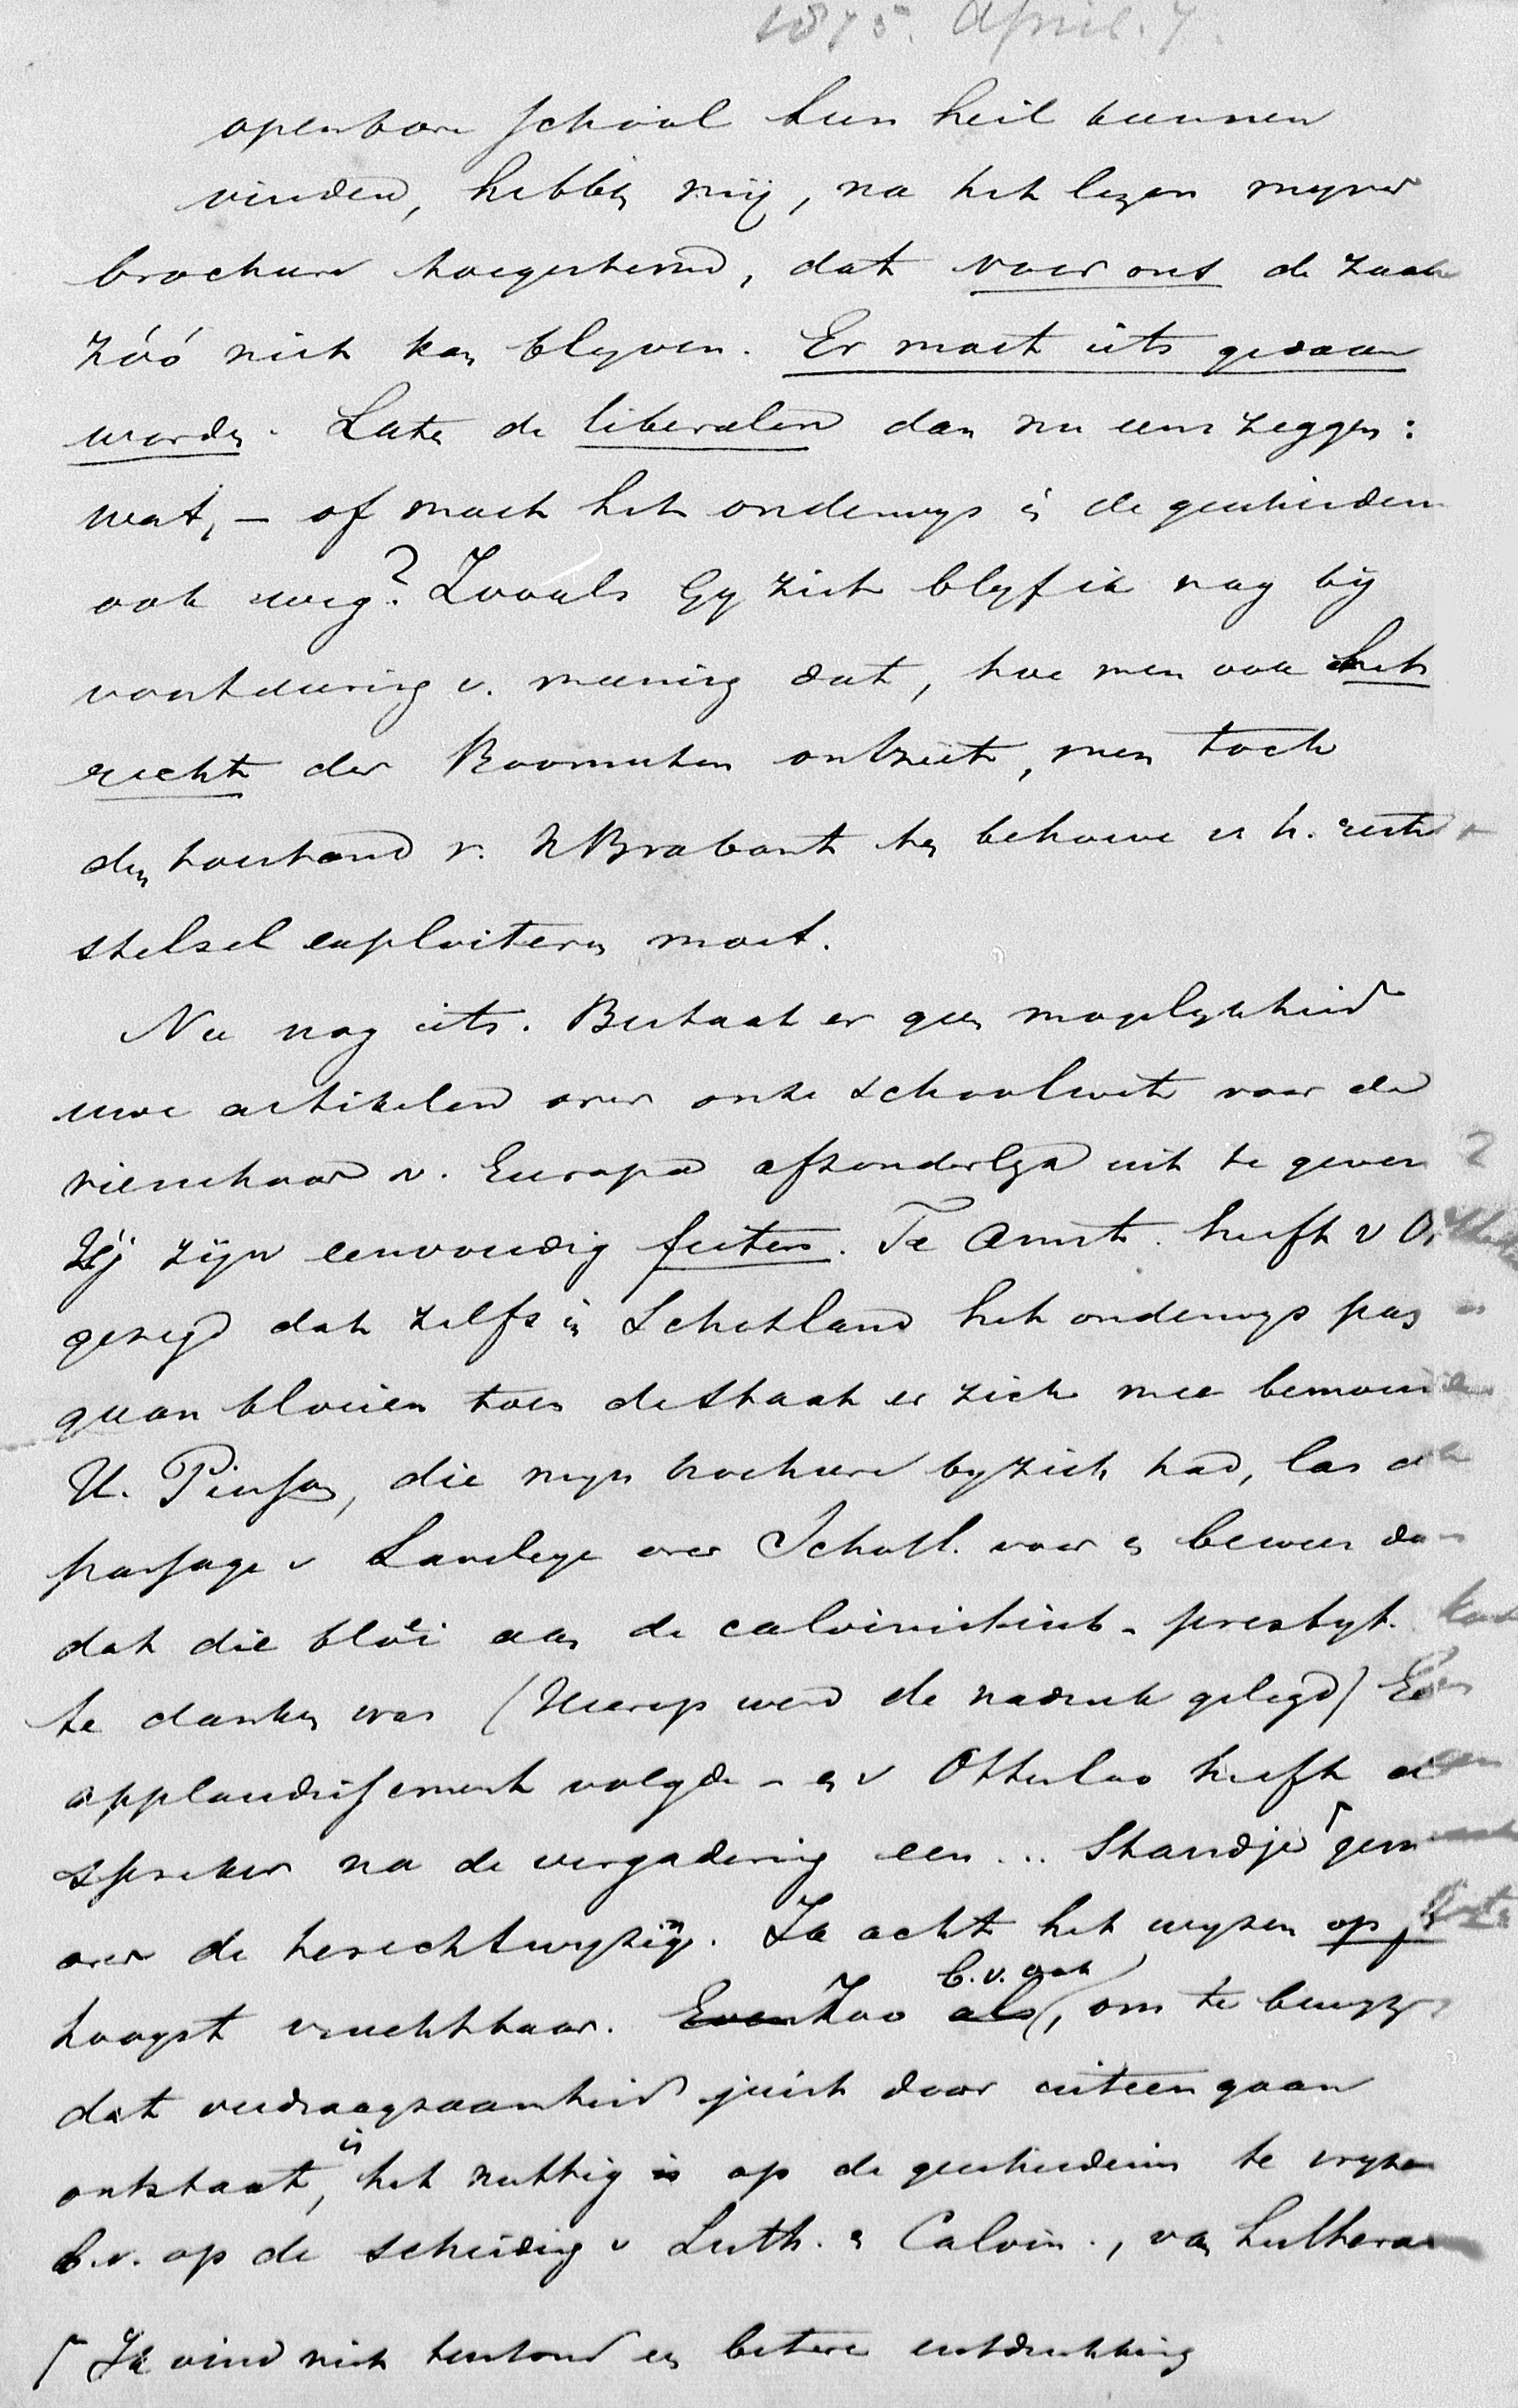 1875. April. 7.
openbare school hun heil kunnen
vinden, hebben mij, na het lezen mijner
brochure toegestemd, dat voor ons de zaak
zóó niet kan blijven. Er moet iets gedaan
worden. Laten de liberalen dan nu eens zeggen:
wat, – of moet het onderwijs in de geschieden
ook weg? Zooals Gij ziet blijf ik nog bij
voortduring v. meening dat, hoe men ook het
recht der Roomschen ontziet, men toch
den toestand v. NBrabant ten behoeve v h. rest
stelsel exploiteren moet.
Nu nog iets. Bestaat er geen mogelijkheid
uwe artikelen over onze schoolwet voor de
vierschaar v. Europa afzonderlijk uit te geven ?
Zij zijn eenvoudig feiten. Te Amst. heeft v Otterloo
gezegd dat zelfs in Schotland het onderwijs pas
gaan bloeien toen de Staat er zich mee bemoeide
H. Pierson, die mijn brochure bij zich had, las de
passage v Laveleye over Schotl. voor en bewees dan
dat die bloei aan de calvinistisch-presbyt. kerk
te danken was (Hierop werd de nadruk gelegd) Een
applaudissement volgde – en v Otterloo heeft den
spreker na de vergadering een ... standje⌈ gemaakt
over de terechtwijzing. Ik acht het wijzen op feiten
hoogst vruchtbaar. Evenzoo als b.v. ook, om te bewijzen
dat verdraagzaamheid juist door uiteengaan
ontstaat, is het nuttig is op de geschiedenis te wijzen
b.v. op de scheiding v Luth. en Calvin., van Lutheran
⌈ Ik vind niet terstond een betere uitdrukking